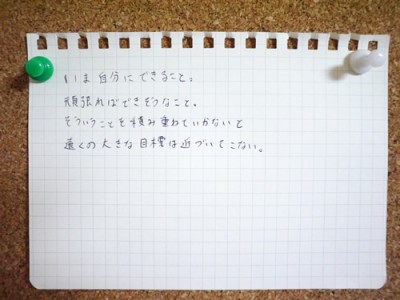 いま自分にできること。
頑張ればできそうなこと。
そういうことを積み重ねていかないと
遠くの大きな目標は近づいてこない。